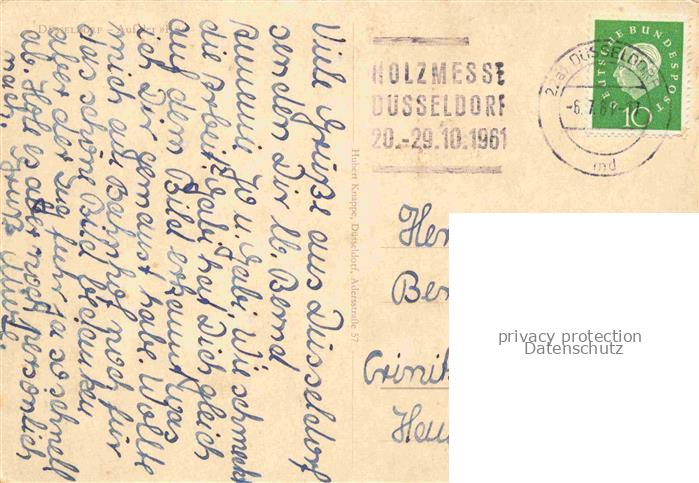 DÜSSELDORF - Auf der
Viele Grüße aus Düsseldorf
senden Dir lb. Bernd
Annemie, Jo u. Gabi. Wie schmeckt
die Arbeit? Gabi hat Dich gleich
auf dem Bild erkannt was
ich Dir gemaust habe. Wollte
mich am Bahnhof noch für
das schöne Bild bedanken
aber der Zug fuhr ja so schnell
ab. Hole es aber noch persönlich
nach. Gruß
Hubert Knappe, Düsseldorf, Adersstraße 57
HOLZMESSE
DÜSSELDORF
20.-29.10.1961
DÜSSELDORF
-6.7.61-17
md
DEUTSCHE BUNDESPOST
10
Her
Ber
Crinit
Hau
privacy protection
Datenschutz